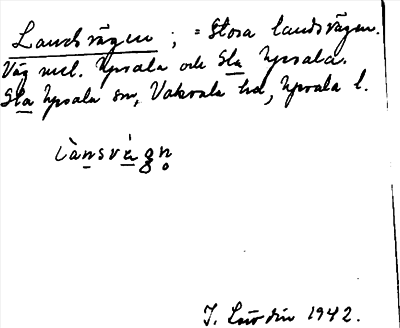 Landsvägen ; = Stora landsvägen.
Väg mel. Upsala och Gla Upsala.
Gla Upsala sn, Vaksala hd, Upsala l.
lànsvàgn
J. Lundin 1942.